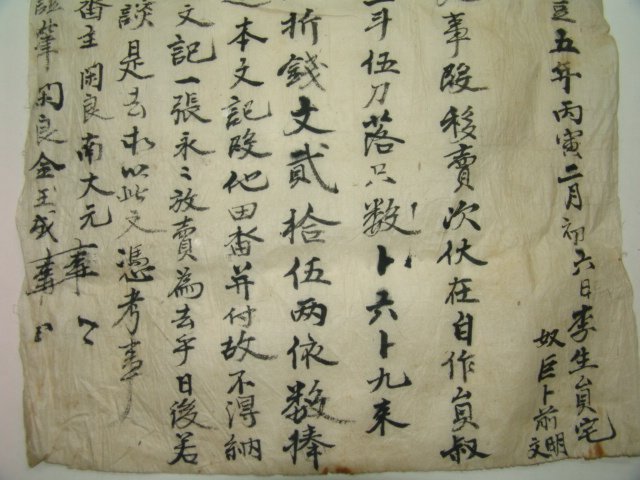 五年丙寅二月初六日李生員宅
奴巨卜前明文
事段移賣次伏在自作員叔
斗伍刀落只数卜六卜九束
折錢文貳拾伍兩依數捧
本文記段他田畓并付故不淂納
文記一張永〻放賣為去乎日後若
談是去木以此文憑考事
畓主閑良南大元
筆閑良金玉成